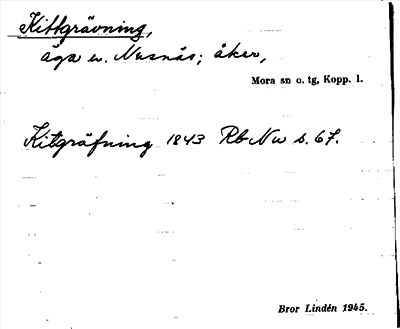 Kittgrävning,
äga v. Nusnäs; åker,
Mora sn o. tg, Kopp. l.
Kitgräfning 1843 Rb Nu s. 67.
Bror Lindén 1945.